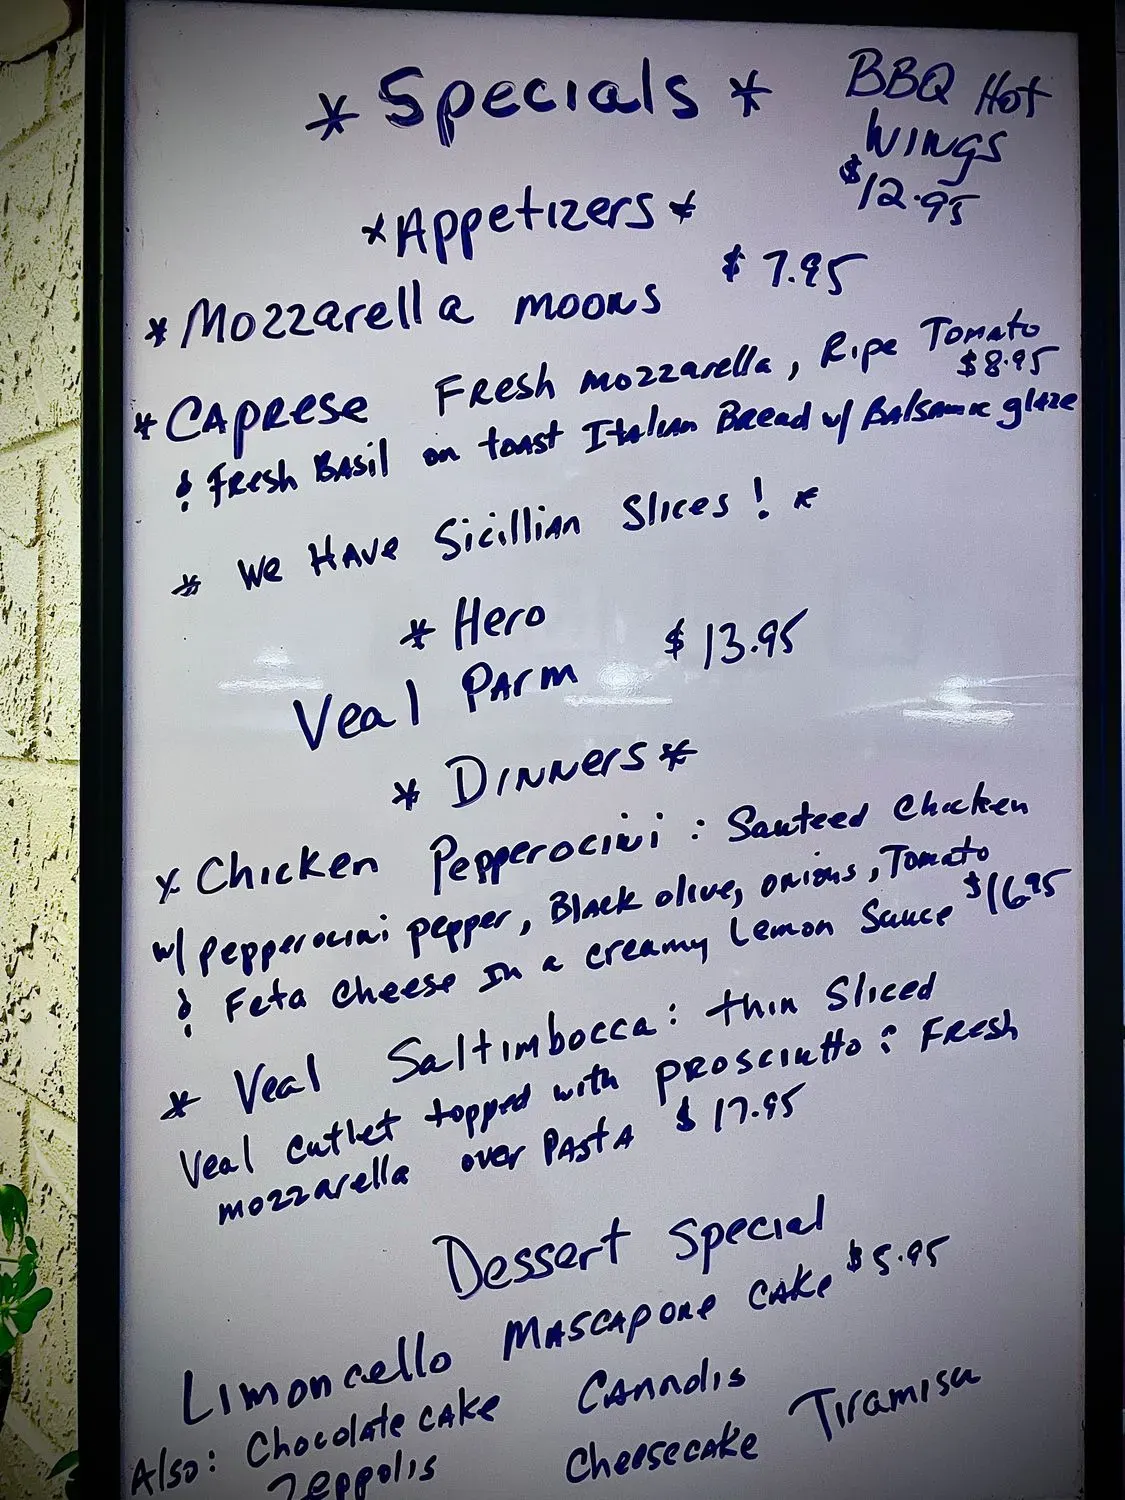 * Specials *
BBQ Hot
Wings
$12.95
*Appetizers*
*Mozzarella moons $7.95
*Caprese Fresh mozzarella, Ripe Tomato
$8.95
& Fresh Basil on toast Italian Bread w/ Balsamic glaze
* We Have Sicillian Slices! *
* Hero
Veal Parm $13.95
* Dinners *
* Chicken Pepperocini: Sauteed Chicken
w/ pepperocini pepper, Black olive, onions, Tomato
& Feta Cheese In a creamy Lemon Sauce $16.95
* Veal Saltimbocca: thin Sliced
Veal cutlet topped with Prosciutto & Fresh
mozzarella over Pasta $17.95
Dessert Special
Limoncello Mascapone Cake $5.95
Also: Chocolate cake Cannolis Tiramisu
Zeppolis Cheesecake